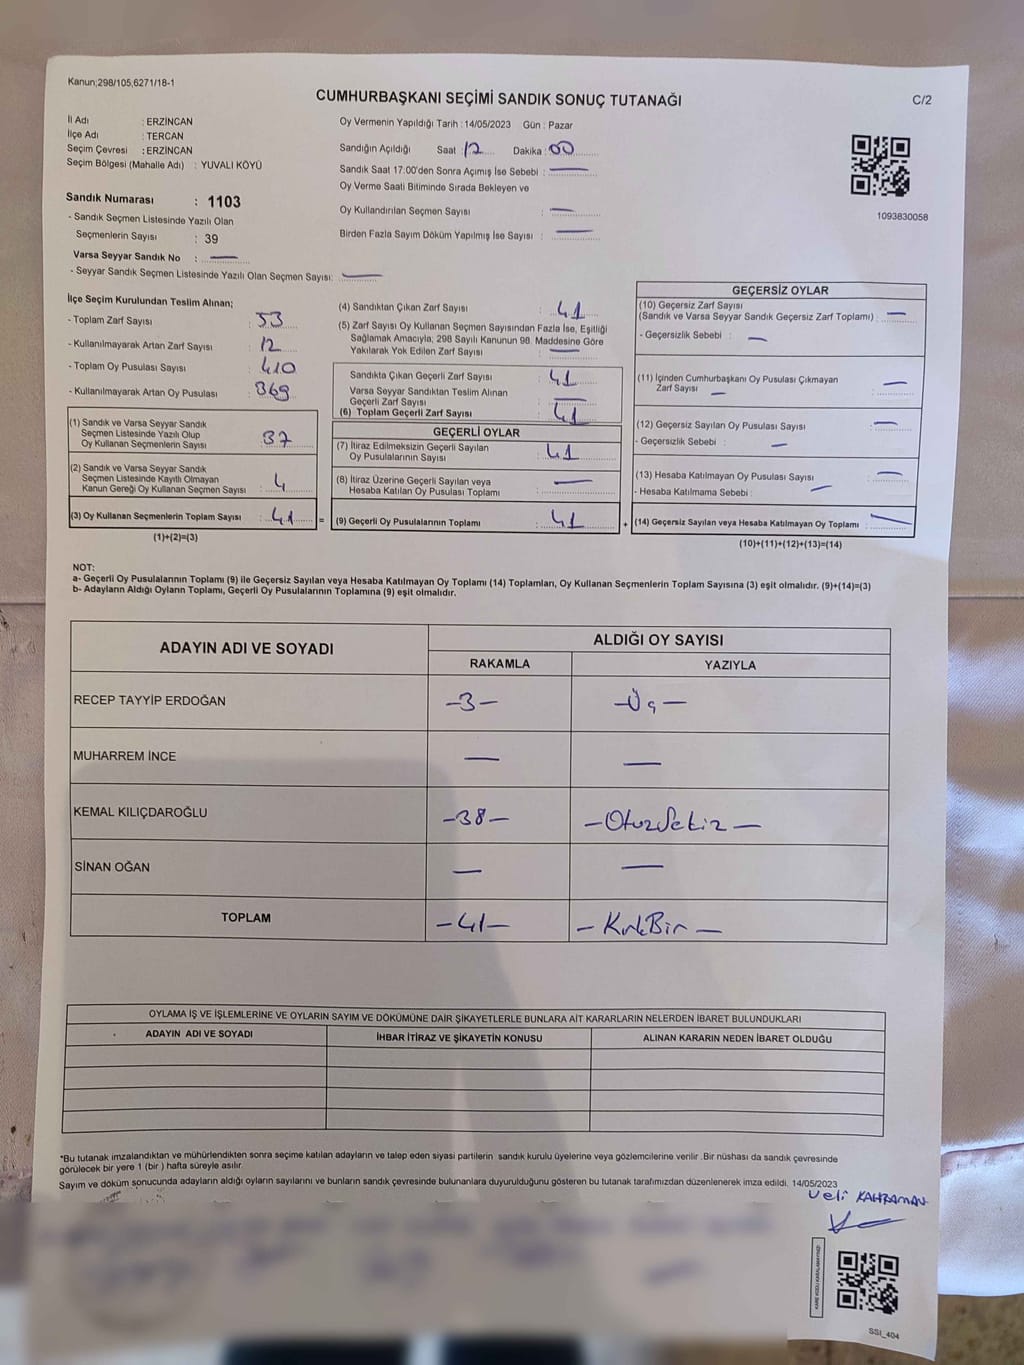 Kanun;298/105,6271/18-1
CUMHURBAŞKANI SEÇİMİ SANDIK SONUÇ TUTANAĞI
C/2
İl Adı : ERZİNCAN
İlçe Adı : TERCAN
Seçim Çevresi : ERZİNCAN
Seçim Bölgesi (Mahalle Adı) : YUVALI KÖYÜ
Sandık Numarası : 1103
- Sandık Seçmen Listesinde Yazılı Olan
Seçmenlerin Sayısı : 39
Varsa Seyyar Sandık No : —
- Seyyar Sandık Seçmen Listesinde Yazılı Olan Seçmen Sayısı: —
Oy Vermenin Yapıldığı Tarih : 14/05/2023 Gün : Pazar
Sandığın Açıldığı Saat : 12 Dakika : 00
Sandık Saat 17:00'den Sonra Açımış İse Sebebi : —
Oy Verme Saati Bitiminde Sırada Bekleyen ve
Oy Kullandırılan Seçmen Sayısı : —
Birden Fazla Sayım Döküm Yapılmış İse Sayısı : —
1093830058
İlçe Seçim Kurulundan Teslim Alınan;
- Toplam Zarf Sayısı : 53
- Kullanılmayarak Artan Zarf Sayısı : 12
- Toplam Oy Pusulası Sayısı : 410
- Kullanılmayarak Artan Oy Pusulası : 369
(1) Sandık ve Varsa Seyyar Sandık
Seçmen Listesinde Yazılı Olup
Oy Kullanan Seçmenlerin Sayısı : 37
(2) Sandık ve Varsa Seyyar Sandık
Seçmen Listesinde Kayıtlı Olmayan
Kanun Gereği Oy Kullanan Seçmen Sayısı : 4
(3) Oy Kullanan Seçmenlerin Toplam Sayısı : 41 =
(1)+(2)=(3)
(4) Sandıktan Çıkan Zarf Sayısı : 41
(5) Zarf Sayısı Oy Kullanan Seçmen Sayısından Fazla İse, Eşitliği
Sağlamak Amacıyla; 298 Sayılı Kanunun 98. Maddesine Göre
Yakılarak Yok Edilen Zarf Sayısı : —
Sandıkta Çıkan Geçerli Zarf Sayısı : 41
Varsa Seyyar Sandıktan Teslim Alınan
Geçerli Zarf Sayısı : —
(6) Toplam Geçerli Zarf Sayısı : 41
GEÇERLİ OYLAR
(7) İtiraz Edilmeksizin Geçerli Sayılan
Oy Pusulalarının Sayısı : 41
(8) İtiraz Üzerine Geçerli Sayılan veya
Hesaba Katılan Oy Pusulası Toplamı : —
(9) Geçerli Oy Pusulalarının Toplamı : 41 +
GEÇERSİZ OYLAR
(10) Geçersiz Zarf Sayısı
(Sandık ve Varsa Seyyar Sandık Geçersiz Zarf Toplamı) : —
- Geçersizlik Sebebi : —
(11) İçinden Cumhurbaşkanı Oy Pusulası Çıkmayan
Zarf Sayısı — : —
(12) Geçersiz Sayılan Oy Pusulası Sayısı : —
- Geçersizlik Sebebi : —
(13) Hesaba Katılmayan Oy Pusulası Sayısı : —
- Hesaba Katılmama Sebebi : —
(14) Geçersiz Sayılan veya Hesaba Katılmayan Oy Toplamı : —
(10)+(11)+(12)+(13)=(14)
NOT:
a- Geçerli Oy Pusulalarının Toplamı (9) ile Geçersiz Sayılan veya Hesaba Katılmayan Oy Toplamı (14) Toplamları, Oy Kullanan Seçmenlerin Toplam Sayısına (3) eşit olmalıdır. (9)+(14)=(3)
b- Adayların Aldığı Oyların Toplamı, Geçerli Oy Pusulalarının Toplamına (9) eşit olmalıdır.
ADAYIN ADI VE SOYADI ALDIĞI OY SAYISI
RAKAMLA YAZIYLA
RECEP TAYYİP ERDOĞAN -3- -Üç-
MUHARREM İNCE — —
KEMAL KILIÇDAROĞLU -38- -OtuzSekiz-
SİNAN OĞAN — —
TOPLAM -41- -KırkBir-
OYLAMA İŞ VE İŞLEMLERİNE VE OYLARIN SAYIM VE DÖKÜMÜNE DAİR ŞİKAYETLERLE BUNLARA AİT KARARLARIN NELERDEN İBARET BULUNDUKLARI
ADAYIN ADI VE SOYADI İHBAR İTİRAZ VE ŞİKAYETİN KONUSU ALINAN KARARIN NEDEN İBARET OLDUĞU
*Bu tutanak imzalandıktan ve mühürlendikten sonra seçime katılan adayların ve talep eden siyasi partilerin sandık kurulu üyelerine veya gözlemcilerine verilir .Bir nüshası da sandık çevresinde
görülecek bir yere 1 (bir ) hafta süreyle asılır.
Sayım ve döküm sonucunda adayların aldığı oyların sayılarını ve bunların sandık çevresinde bulunanlara duyurulduğunu gösteren bu tutanak tarafımızdan düzenlenerek imza edildi. 14/05/2023
Veli KAHRAMAN
SSI_404